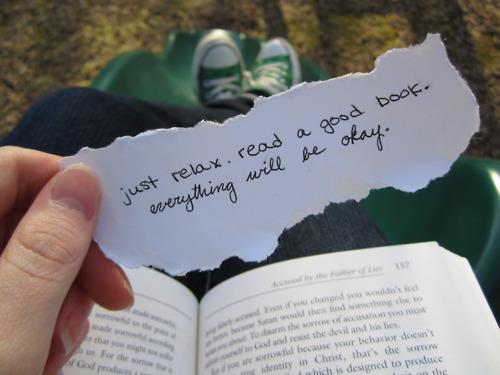 just relax. read a good book.
everything will be okay.
Accused by the Father of Lies 157
falsely accused. Even if you changed you wouldn't feel
better, because Satan would then find something else to
accuse you about. To disarm the sorrow of accusation you must
submit yourself to God and resist the devil and his lies.
But if you are sorrowful because your behavior doesn't
identity in Christ, that's the sorrow
which is designed to produce
made sorrowful,
sorrowful to the point of
made sorrowful according
that you might not suffer
us. For the sorrow that is
of God produces